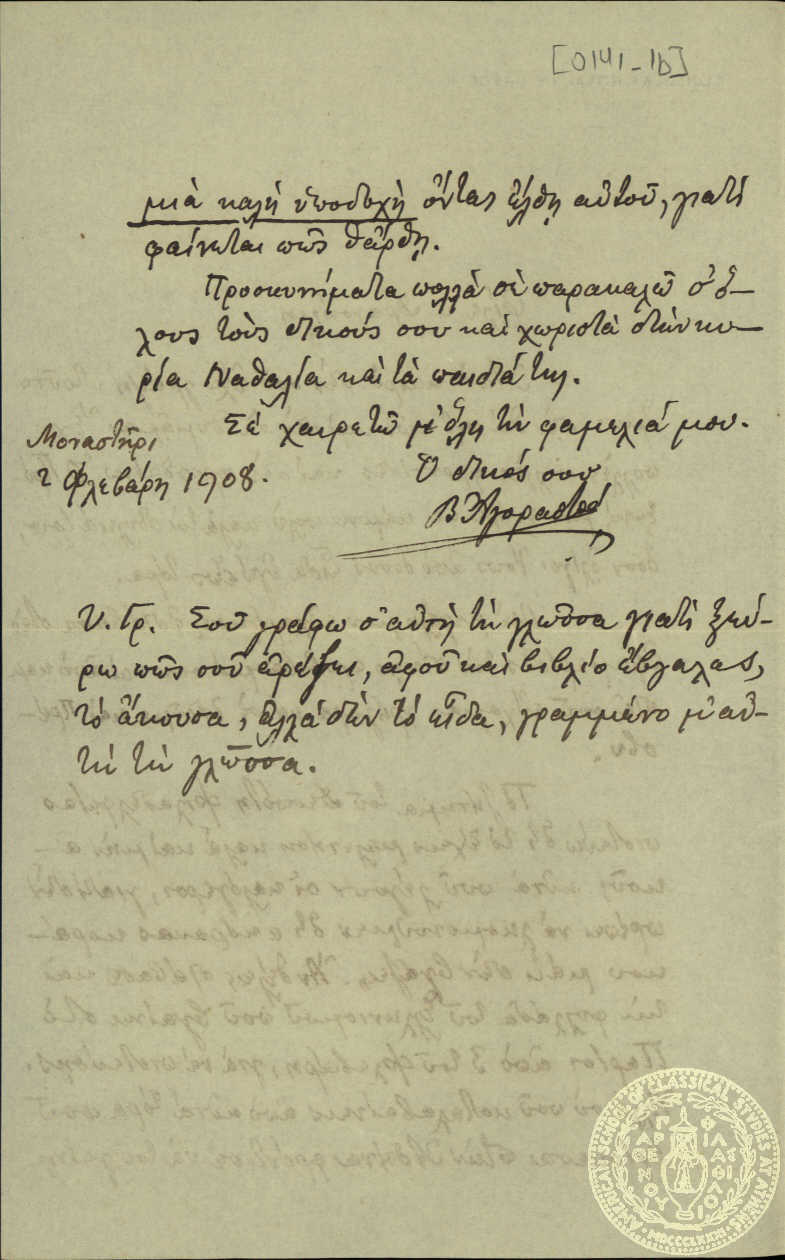 [0141-1b]
μιὰ καλὴ ὑποδοχὴ ὄντας ἔλθῃ αὐτοῦ, γιατὶ
φαίνεται πῶς θἄρθῃ.
Προσκυνήματα πολλὰ σὲ παρακαλῶ σ' ὅ-
λους τοὺς δικούς σου καὶ χωριστὰ στὴν κυ-
ρία Ναθαλία καὶ τὰ παιδιά της.
Σὲ χαιρετῶ μ' ὅλη τὴ φαμελιά μου.
Μοναστῆρι
2 Φλεβάρη 1908.
Ὁ δικός σου
Β Ἀγοραστὸς
Υ. Γρ. Σοῦ γράφω σ' αὐτὴ τὴ γλῶσσα γιατὶ ξεύ-
ρω πῶς σοῦ ἀρέσει, ἀφοῦ καὶ βιβλίο ἔβγαλες,
τὸ ἄκουσα, ἀλλὰ δὲν τὸ εἶδα, γραμμένο μ' αὐ-
τὴ τὴ γλῶσσα.
AMERICAN SCHOOL OF CLASSICAL STUDIES AT ATHENS
MDCCCLXXXI
ΠΑΡΘΕΝΟΥ
ΦΙΛΑΣ ΦΙΛΟΙ